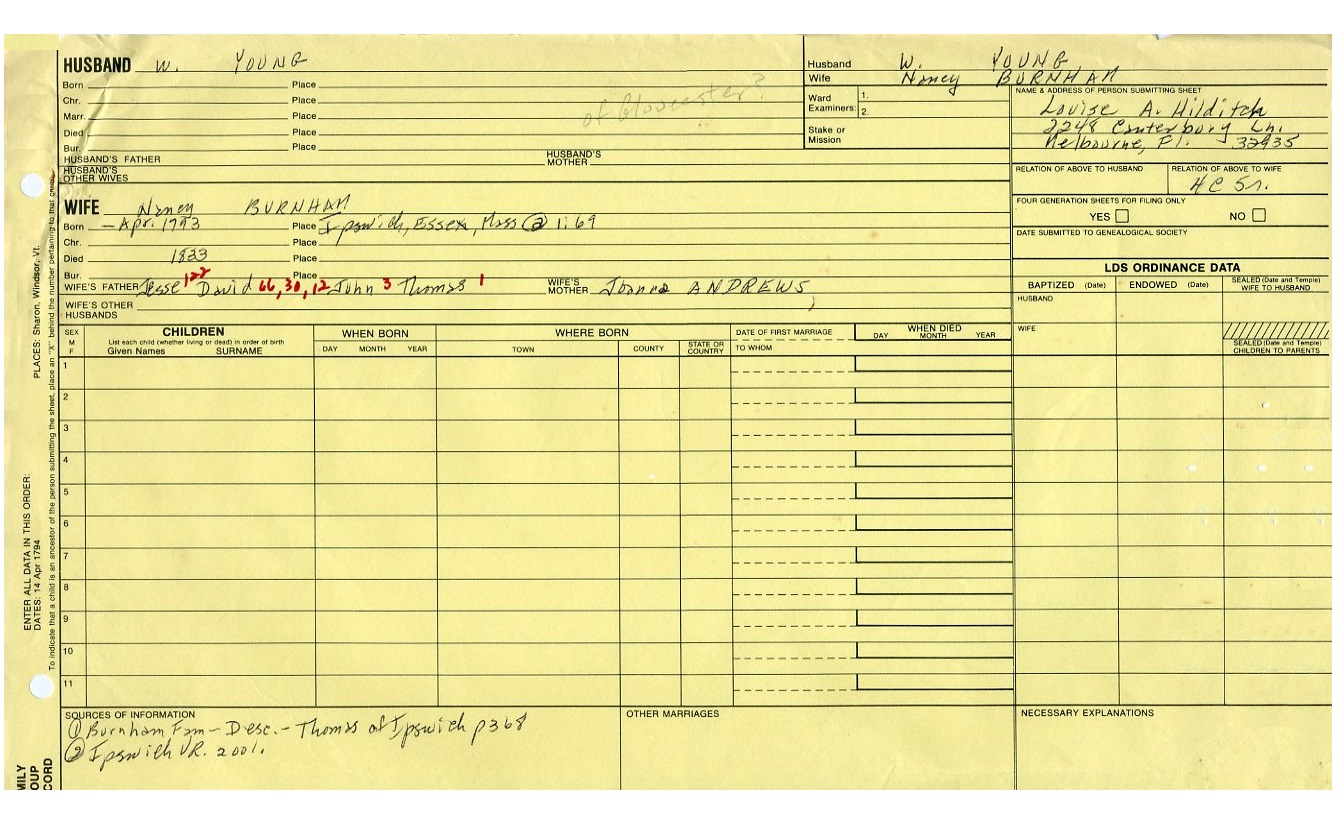 HUSBAND W. YOUNG
Born Place
Chr. Place
Marr. Place of Gloucester?
Died Place
Bur. Place
HUSBAND'S FATHER HUSBAND'S MOTHER
HUSBAND'S OTHER WIVES
Husband W. YOUNG
Wife Nancy BURNHAM
Ward Examiners: 1.
2.
Stake or Mission
NAME & ADDRESS OF PERSON SUBMITTING SHEET
Louise A. Hilditch
2248 Canterbury Ln.
Melbourne, Fl. 32935
RELATION OF ABOVE TO HUSBAND RELATION OF ABOVE TO WIFE
4C 5r.
FOUR GENERATION SHEETS FOR FILING ONLY
YES NO
DATE SUBMITTED TO GENEALOGICAL SOCIETY
WIFE Nancy BURNHAM
Born - Apr. 1793 Place Ipswich, Essex, Mass ② 1:69
Chr. Place
Died 1833 Place
Bur. Place
WIFE'S FATHER Jesse 122 David 66, 30, 12 John 3 Thomas 1 WIFE'S MOTHER Joanna ANDREWS
WIFE'S OTHER HUSBANDS
LDS ORDINANCE DATA
BAPTIZED (Date) ENDOWED (Date) SEALED (Date and Temple) WIFE TO HUSBAND
HUSBAND
WIFE
SEALED (Date and Temple) CHILDREN TO PARENTS
SEX M F CHILDREN WHEN BORN WHERE BORN DATE OF FIRST MARRIAGE WHEN DIED
List each child (whether living or dead) in order of birth
Given Names SURNAME DAY MONTH YEAR TOWN COUNTY STATE OR COUNTRY TO WHOM DAY MONTH YEAR
1
2
3
4
5
6
7
8
9
10
11
SOURCES OF INFORMATION
① Burnham Fam - Desc. - Thomas of Ipswich p368
② Ipswich VR. 2001.
OTHER MARRIAGES
NECESSARY EXPLANATIONS
ENTER ALL DATA IN THIS ORDER:
DATES: 14 Apr 1794 PLACES: Sharon, Windsor, Vt.
To indicate that a child is an ancestor of the person submitting the sheet, place an "X" behind the number pertaining to that
MILY
OUP
CORD